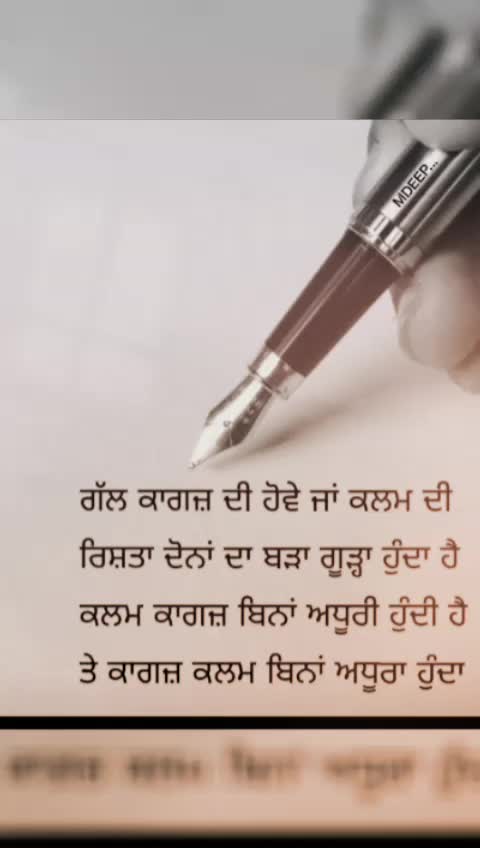 MDEEP...
ਗੱਲ ਕਾਗਜ਼ ਦੀ ਹੋਵੇ ਜਾਂ ਕਲਮ ਦੀ
ਰਿਸ਼ਤਾ ਦੋਨਾਂ ਦਾ ਬੜਾ ਗੂੜ੍ਹਾ ਹੁੰਦਾ ਹੈ
ਕਲਮ ਕਾਗਜ਼ ਬਿਨਾਂ ਅਧੂਰੀ ਹੁੰਦੀ ਹੈ
ਤੇ ਕਾਗਜ਼ ਕਲਮ ਬਿਨਾਂ ਅਧੂਰਾ ਹੁੰਦਾ